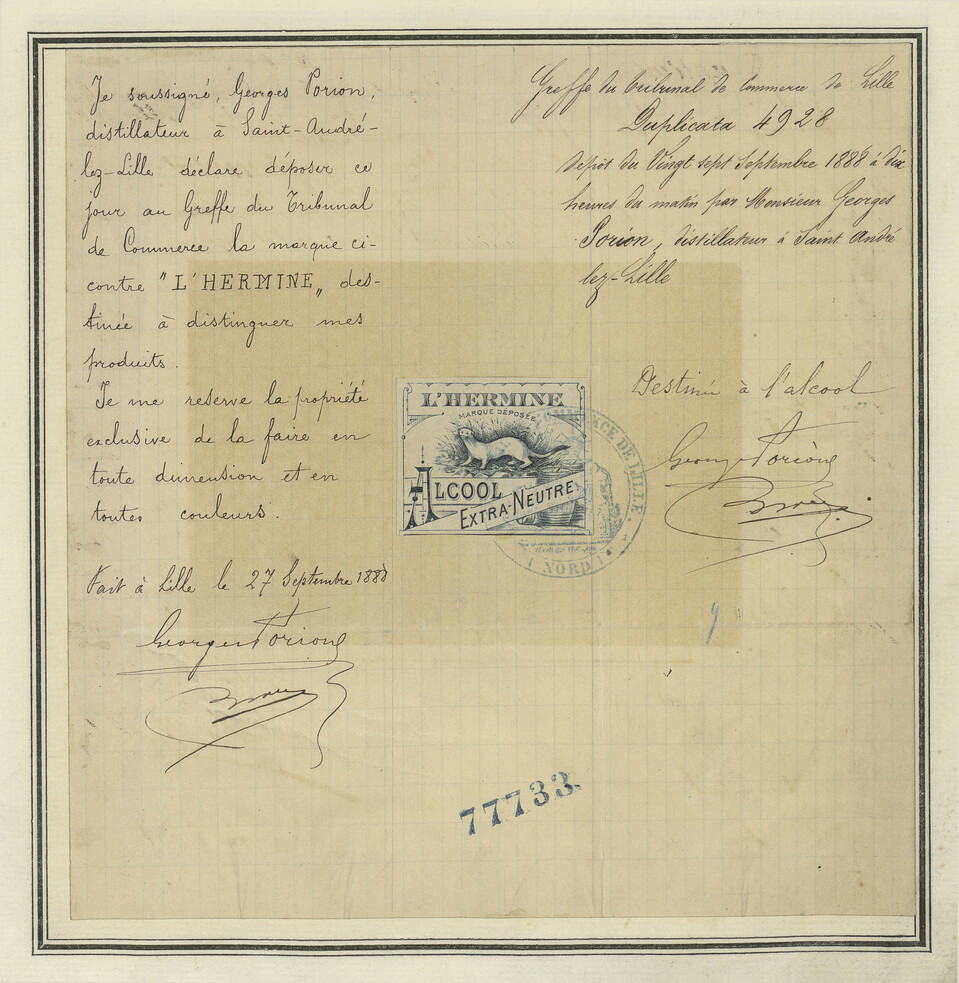 Je soussigné, Georges Porion,
distillateur à Saint-André-
lez-Lille déclare déposer ce
jour au Greffe du Tribunal
de Commerce la marque ci-
contre "L'HERMINE„ des-
tinée à distinguer mes
produits.
Je me reserve la propriété
exclusive de la faire en
toute dimension et en
toutes couleurs.
Fait à Lille le 27 Septembre 1888
Georges Porion
Greffe du tribunal de Commerce de Lille
Duplicata 4928
Dépôt du Vingt sept Septembre 1888 à dix
heures du matin par Monsieur Georges
Porion, distillateur à Saint André
lez-Lille
Destinée à l'alcool
Georges Porion
L'HERMINE
MARQUE DÉPOSÉE
ALCOOL
EXTRA-NEUTRE
DE LILLE
NORD
9
77733